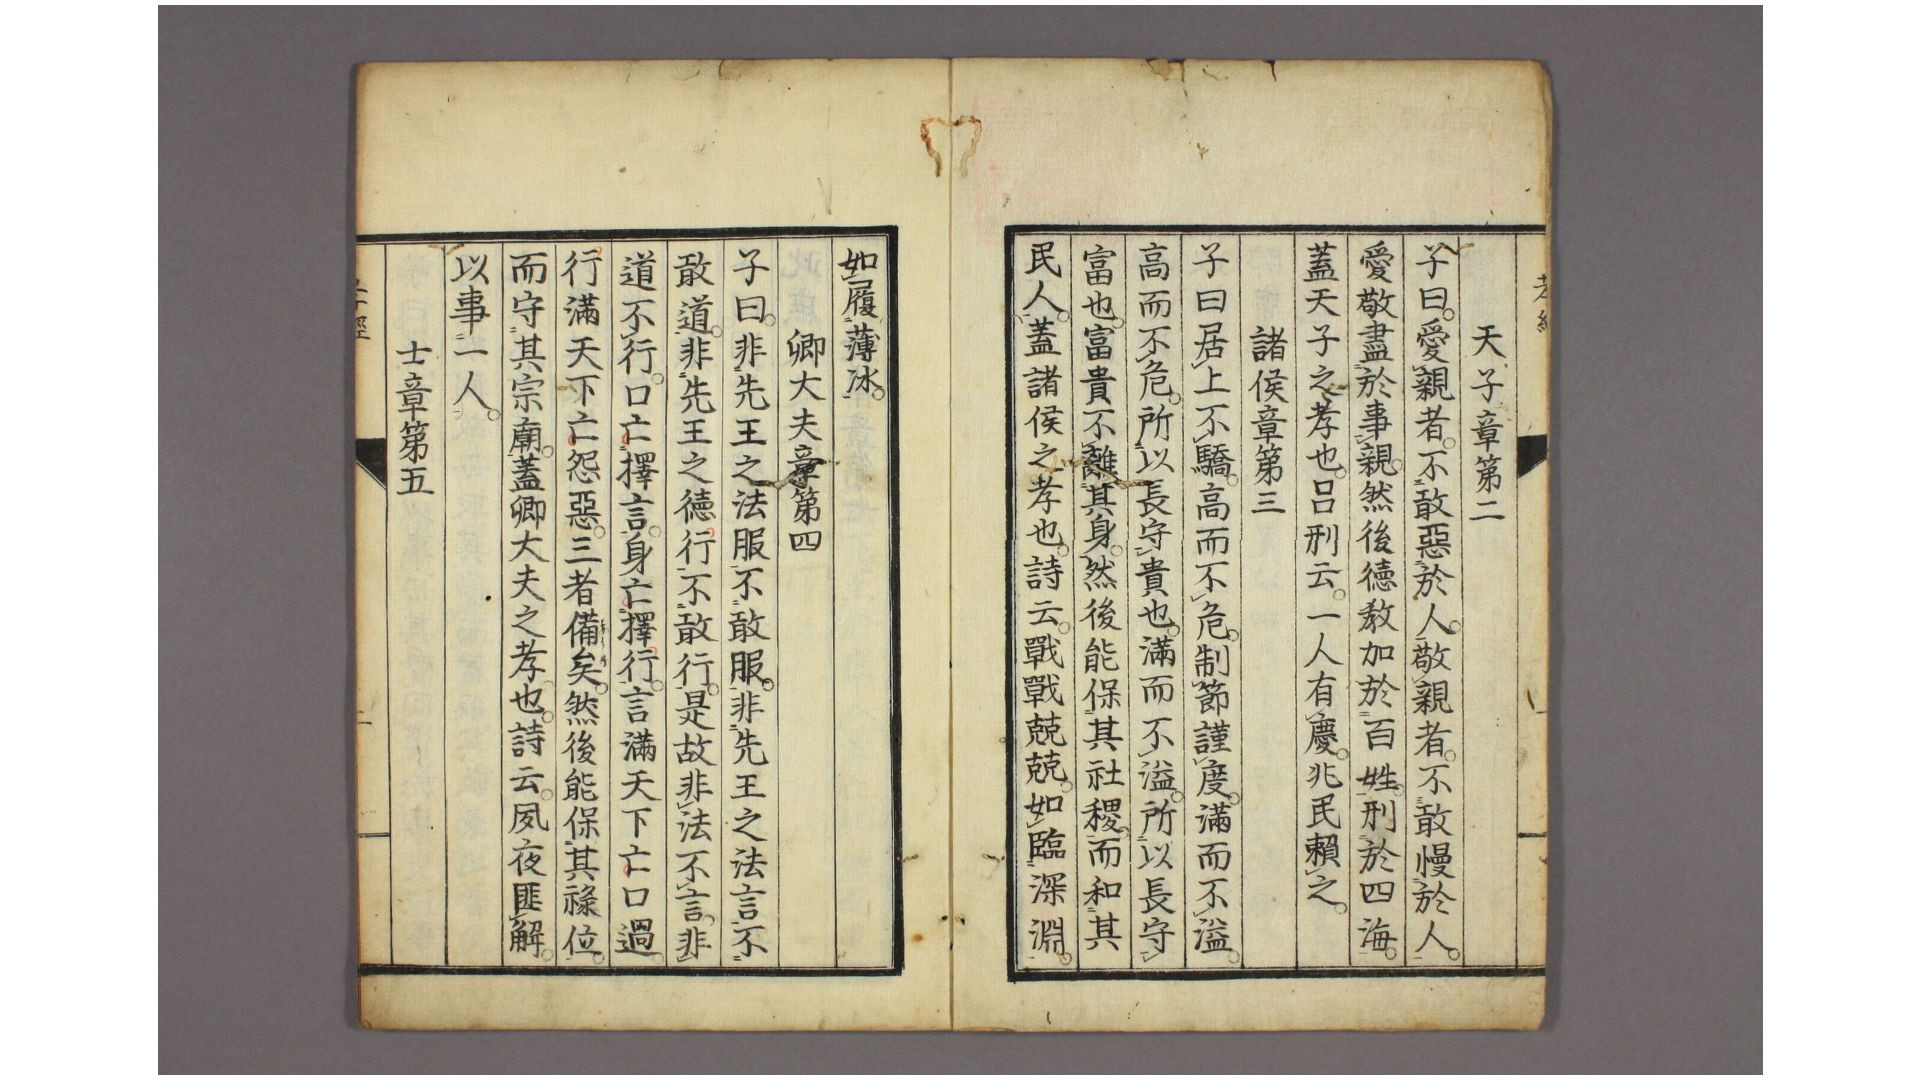 天子章第二
子曰愛親者不敢惡於人敬親者不敢慢於人
愛敬盡於事親然後德教加於百姓刑於四海
蓋天子之孝也呂刑云一人有慶兆民賴之
諸侯章第三
子曰居上不驕高而不危制節謹度滿而不溢
高而不危所以長守貴也滿而不溢所以長守
富也富貴不離其身然後能保其社稷而和其
民人蓋諸侯之孝也詩云戰戰兢兢如臨深淵
如履薄冰
卿大夫章第四
子曰非先王之法服不敢服非先王之法言不
敢道非先王之德行不敢行是故非法不言非
道不行口亡擇言身亡擇行言滿天下亡口過
行滿天下亡怨惡三者備矣然後能保其祿位
而守其宗廟蓋卿大夫之孝也詩云夙夜匪解
以事一人
士章第五